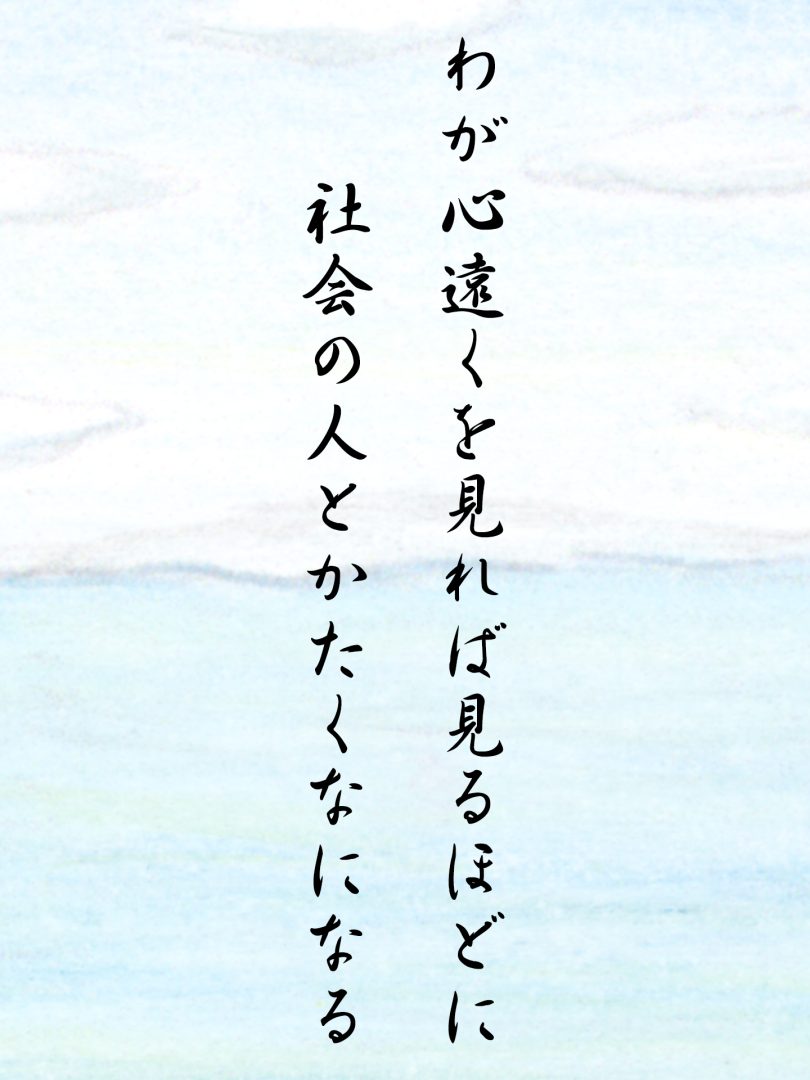 わが心遠くを見れば見るほどに
社会の人とかたくなになる